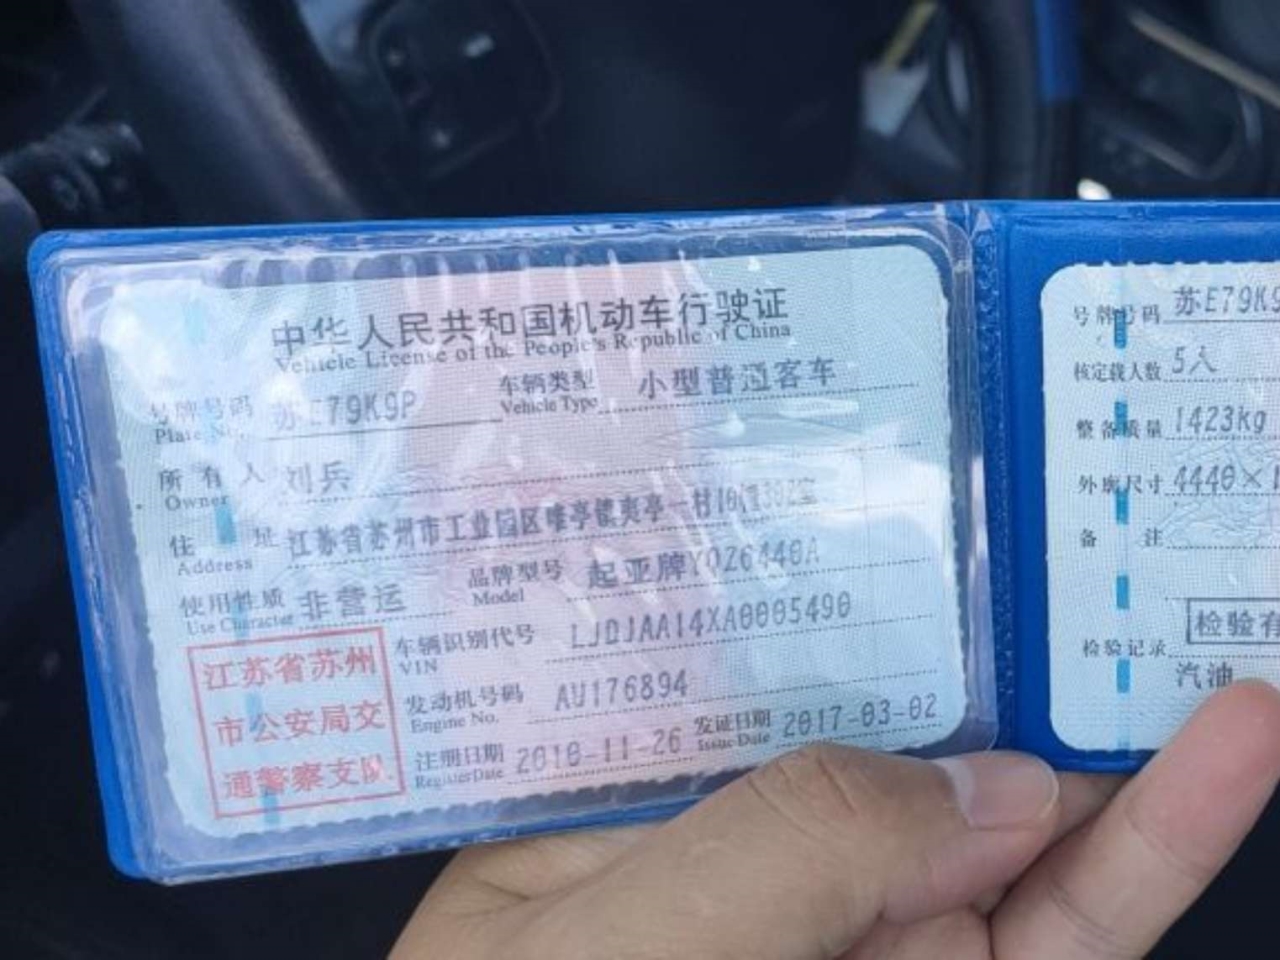 中华人民共和国机动车行驶证
Vehicle License of the People's Republic of China
号牌号码 苏E79K9P 车辆类型 小型普通客车
Plate No. Vehicle Type
所有人 刘兵
Owner
住址 江苏省苏州市工业园区唯亭镇爽亭一村
Address
使用性质 非营运 品牌型号 起亚牌YQZ6440A
Use Character Model
车辆识别代号 LJDJAA14XA0005490
VIN
发动机号码 AU176894
Engine No.
注册日期 2010-11-26 发证日期 2017-03-02
Register Date Issue Date
江苏省苏州
市公安局交
通警察支队
号牌号码 苏E79K9
核定载人数 5人
整备质量 1423kg
外廓尺寸 4440×1
备注
检验有
检验记录
汽油